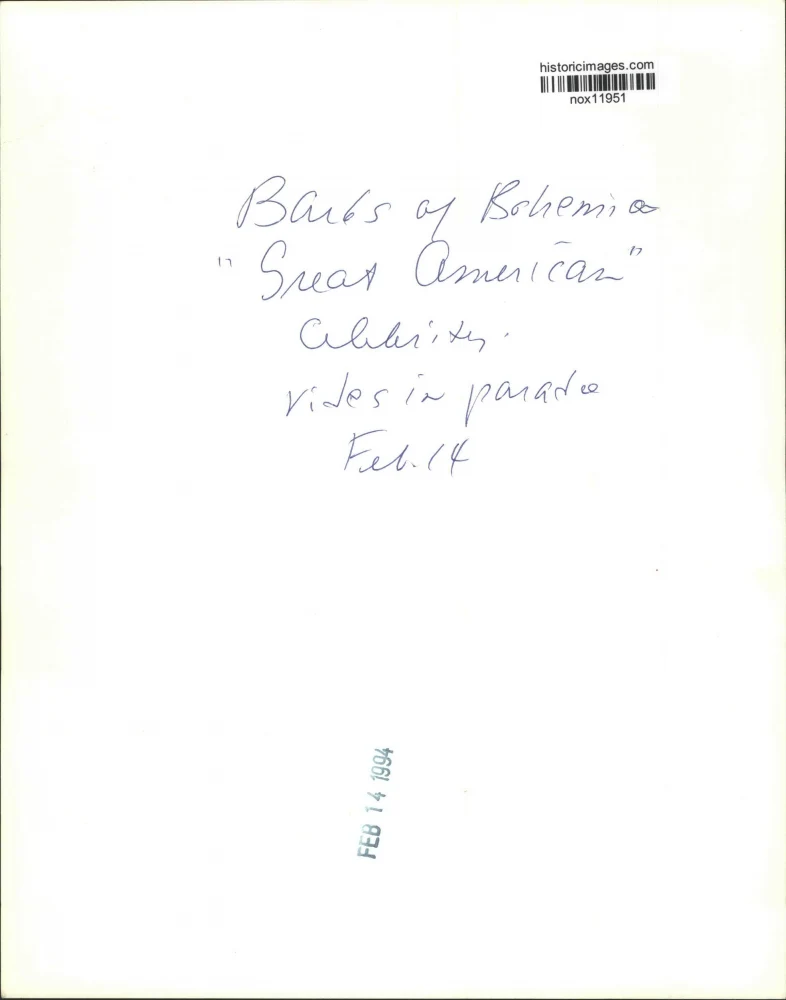 historicimages.com
nox11951
Barks of Bohemia
"Great American"
Celebrity.
rides in parade
Feb. 14
FEB 14 1994